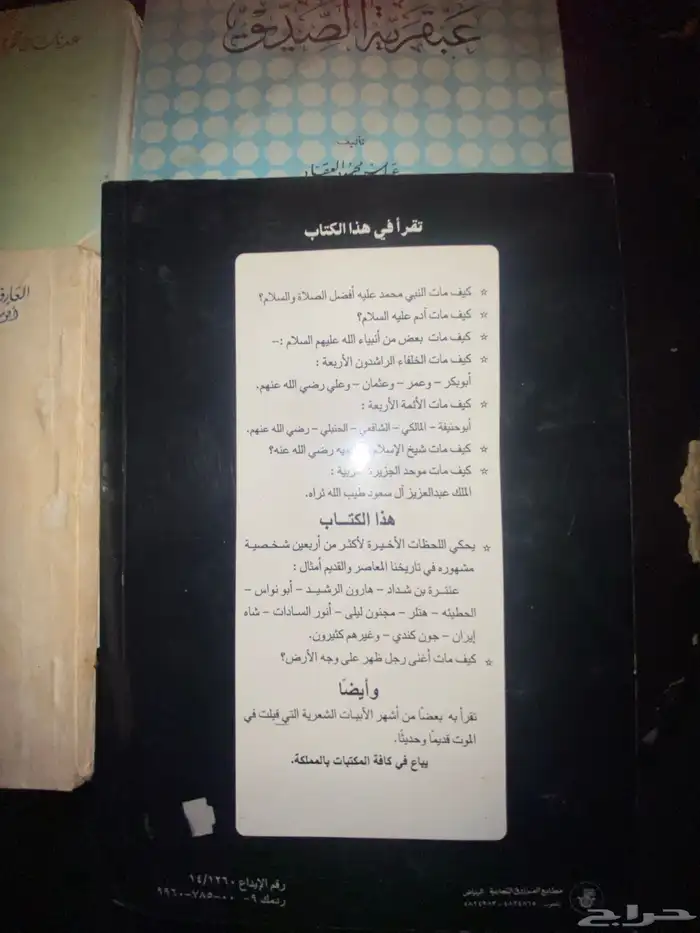 عبقرية الصديق
تأليف
عباس محمود العقاد
تقرأ في هذا الكتاب
☆ كيف مات النبي محمد عليه أفضل الصلاة والسلام؟
☆ كيف مات آدم عليه السلام؟
☆ كيف مات بعض من أنبياء الله عليهم السلام :-
☆ كيف مات الخلفاء الراشدون الأربعة :
أبوبكر - وعمر - وعثمان - وعلي رضي الله عنهم.
☆ كيف مات الأئمة الأربعة :
أبوحنيفة - المالكي - الشافعي - الحنبلي - رضي الله عنهم.
☆ كيف مات شيخ الإسلام رضي الله عنه؟
☆ كيف مات موحد الجزيرة
الملك عبدالعزيز آل سعود طيب الله ثراه.
هذا الكتـــاب
☆ يحكي اللحظات الأخيرة لأكثر من أربعين شخصية
مشهوره في تاريخنا المعاصر والقديم أمثال :
عنترة بن شداد - هارون الرشيد - أبو نواس -
الحطيئه - هتلر - مجنون ليلى - أنور السادات - شاه
إيران - جون كندي - وغيرهم كثيرون.
☆ كيف مات أغنى رجل ظهر على وجه الأرض؟
وأيضًا
تقرأ به بعضًا من أشهر الأبيات الشعرية التي قيلت في
الموت قديمًا وحديثًا.
يباع في كافة المكتبات بالمملكة.
رقم الإيداع ١٤/١٢٦٠
ردمك ٩-٠٠-٧٨٥-٩٩٦٠
الرياض
حراج